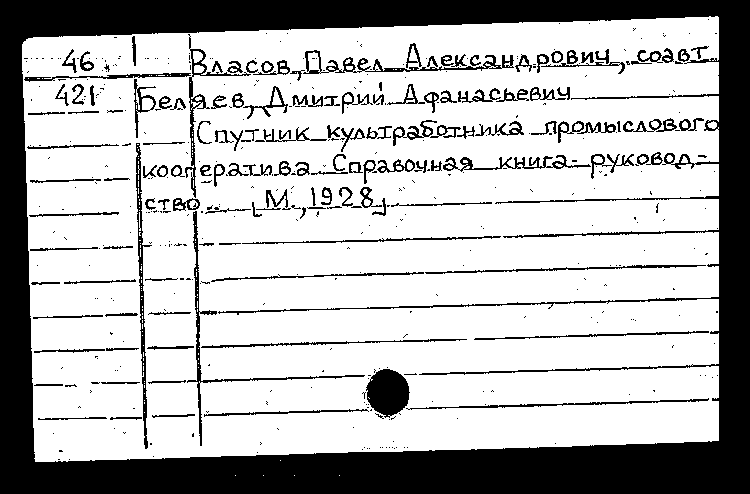 46. Власов, Павел Александрович, соавт.
421 Беляев, Дмитрий Афанасьевич
Спутник культработника промыслового
кооператива. Справочная книга-руковод-
ство.. [М., 1928]